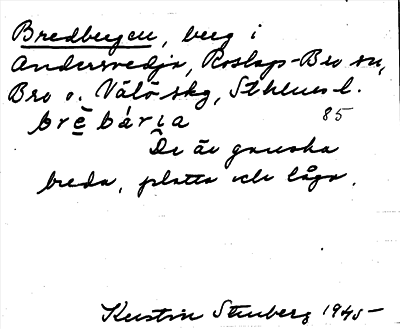 Bredbergen, berg i
Andersvedja, Roslags-Bro sn,
Bro o. Vätö skg, Sthlms l.
brē bárịa 85
De äro ganska
breda, platta och låga.
Kerstin Stenberg 1945